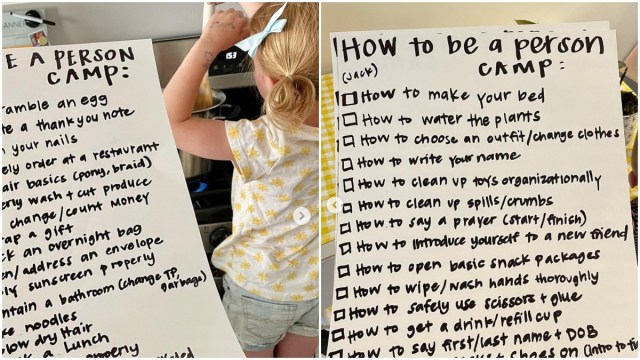 PLANNER
153
E A PERSON
CAMP:
ramble an egg
te a thank you note
n your nails
ely order at a restaurant
air basics (pony, braid)
erly wash + cut produce
change/count money
rap a gift
ck an overnight bag
en/address an envelope
ly sunscreen properly
ntain a bathroom (change TP,
garbage)
se noodles
low dry Hair
k a Lunch
properly
HOW to be a person
(JACK) CAMP:
HOW to make your bed
How to water the plants
How to choose an outfit/change clothes
How to write your name
How to clean up toys organizationally
How to clean up spills/crumbs
How to say a prayer (start/finish)
How to introduce yourself to a new friend
How to open basic snack packages
How to wipe/wash hands thoroughly
How to safely use scissors + glue
How to get a drink/refill cup
How to say first/last name + DOB
(intro to